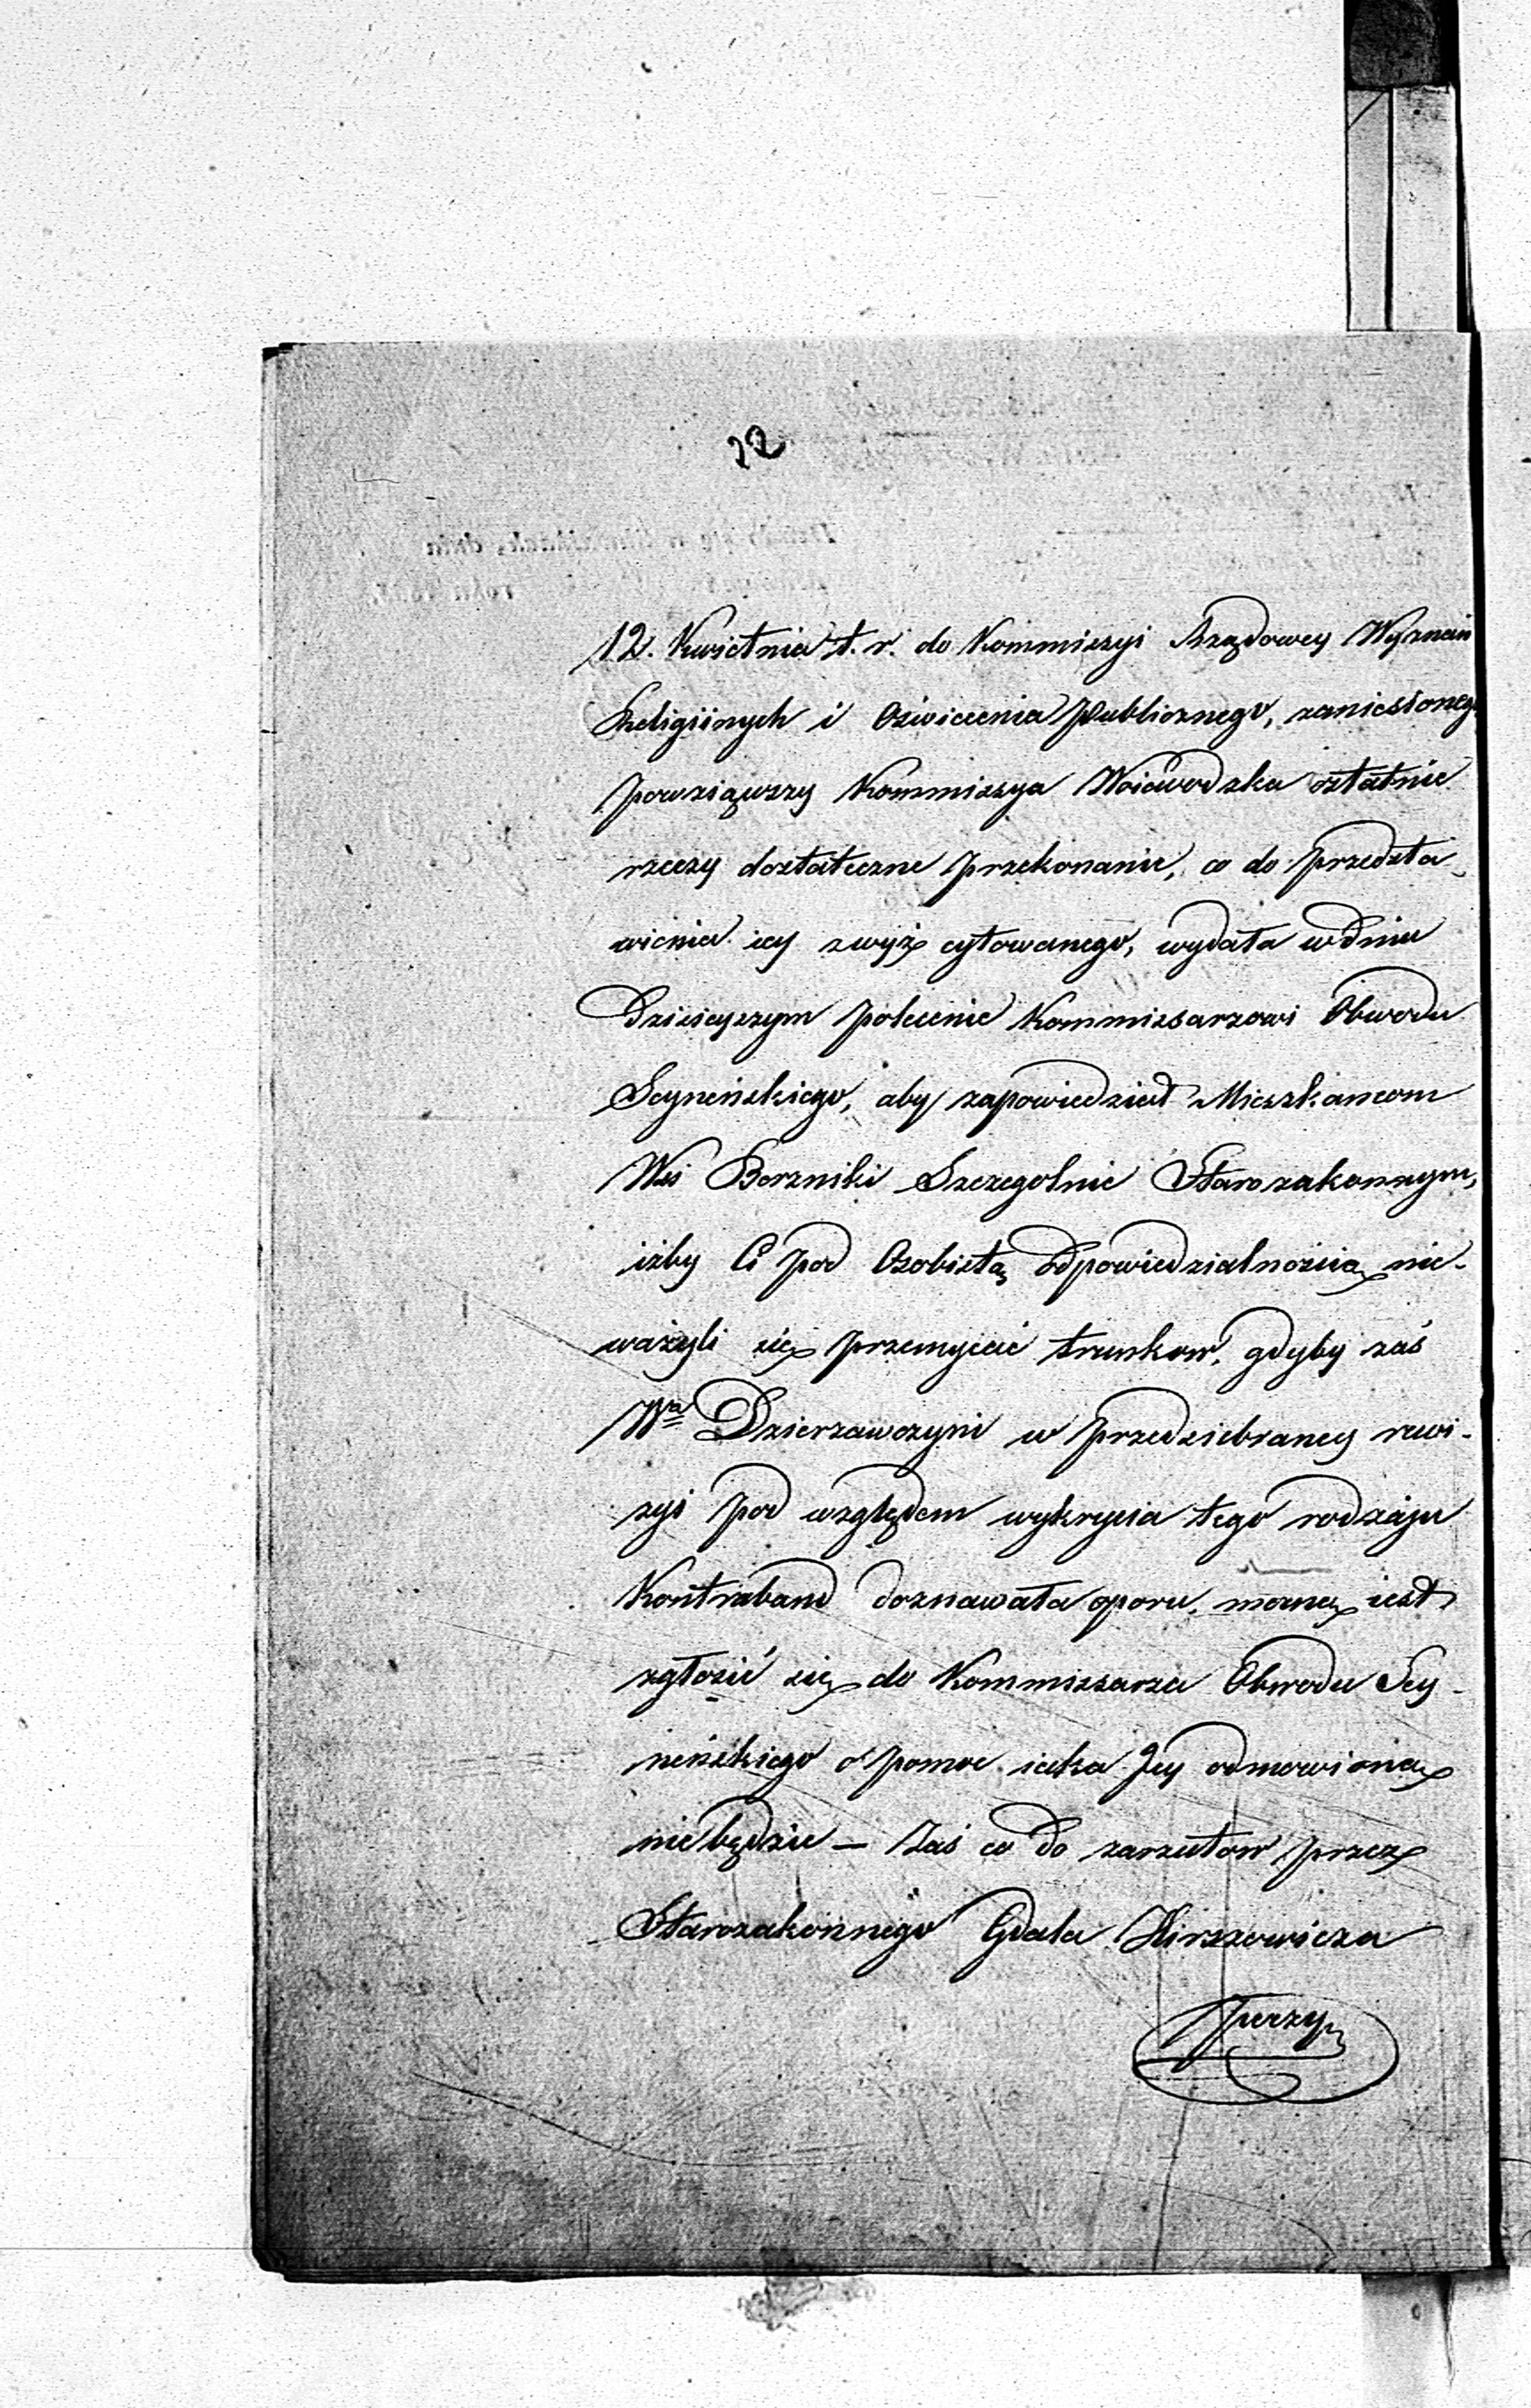 22
12. Kwietnia t. r. do Kommissyi Rządowey Wyznań
Religiinych i Oświecenia Publicznego, zaniesionego
powziąwszy Kommissya Woiewodzka ostatnie
rzeczy dostateczne przekonanie, co do przedsta-
wienia iey zwyż cytowanego, wydała w dniu
Dzisieyszym polecenie Kommissarzowi Obwodu
Seyneńskiego, aby zapowiedział Mieszkańcom
Wsi Berzniki Szczegolnie Starozakonnym,
iżby Ci pod Osobistą odpowiedzialnością nie-
ważyli się przemycać trunkow, gdyby zaś
Wa Dzierzawczyni w przedsiebraney rewi-
zyi pod względem wykrycia tego rodzaju
Kontraband doznawała oporu, mocną iest
zgłosić się do Kommissarza Obwodu Sey-
neńskiego o pomoc iaka Jey odmowioną
nie będzie — Zaś co do zarzutow przez
Starozakonnego Gdala Hirszowicza